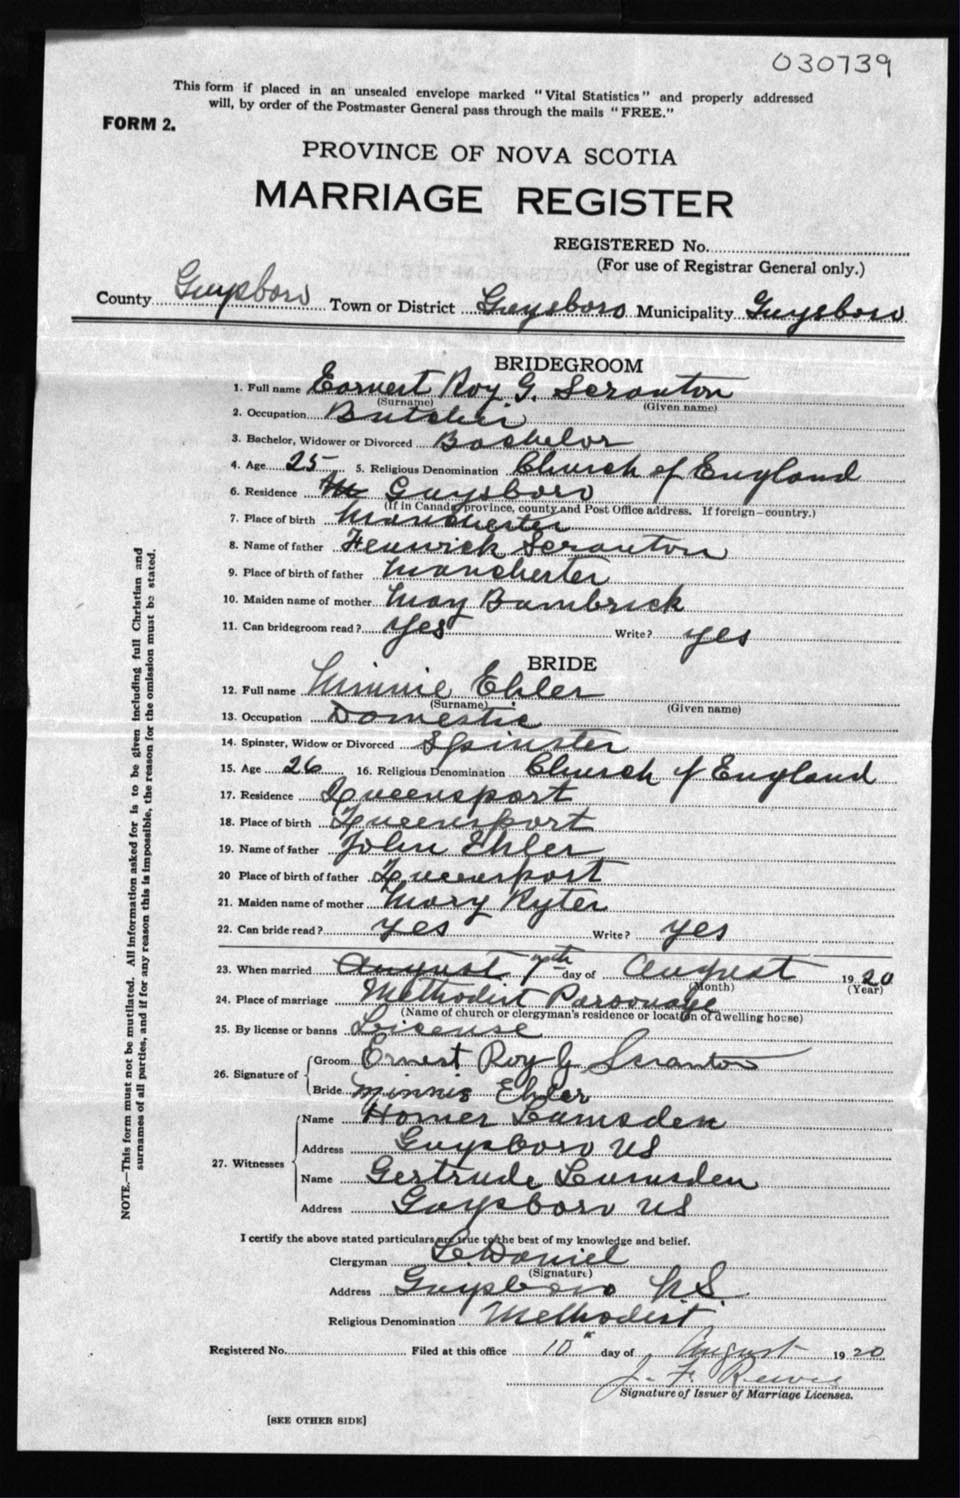 030739
This form if placed in an unsealed envelope marked "Vital Statistics" and properly addressed
will, by order of the Postmaster General pass through the mails "FREE."
FORM 2.
PROVINCE OF NOVA SCOTIA
MARRIAGE REGISTER
REGISTERED No.
(For use of Registrar General only.)
County Guysboro Town or District Guysboro Municipality Guysboro
BRIDEGROOM
1. Full name Earnest Roy G. Scranton
(Surname) (Given name)
2. Occupation Butcher
3. Bachelor, Widower or Divorced Bachelor
4. Age 25 5. Religious Denomination Church of England
6. Residence Guysboro
(If in Canada, province, county and Post Office address. If foreign—country.)
7. Place of birth Manchester
8. Name of father Fenwick Scranton
9. Place of birth of father Manchester
10. Maiden name of mother May Bambrick
11. Can bridegroom read? Yes Write? yes
BRIDE
12. Full name Minnie Ehler
(Surname) (Given name)
13. Occupation Domestic
14. Spinster, Widow or Divorced Spinster
15. Age 26 16. Religious Denomination Church of England
17. Residence Queensport
18. Place of birth Queensport
19. Name of father John Ehler
20 Place of birth of father Queensport
21. Maiden name of mother Mary Ryter
22. Can bride read? yes Write? yes
23. When married August 7th day of August 1920
(Month) (Year)
24. Place of marriage Methodist Parsonage
(Name of church or clergyman's residence or location of dwelling house)
25. By license or banns License
26. Signature of
Groom Ernest Roy G. Scranton
Bride Minnie Ehler
27. Witnesses
Name Homer Lumsden
Address Guysboro NS
Name Gertrude Lumsden
Address Guysboro NS
I certify the above stated particulars are true to the best of my knowledge and belief.
Clergyman L. Daniel
(Signature)
Address Guysboro N.S.
Religious Denomination Methodist
Registered No. Filed at this office 10th day of August 1920
J. F.
Signature of Issuer of Marriage Licenses.
[SEE OTHER SIDE]
NOTE.—This form must not be mutilated. All information asked for is to be given including full Christian and
surnames of all parties, and if for any reason this is impossible, the reason for the omission must be stated.